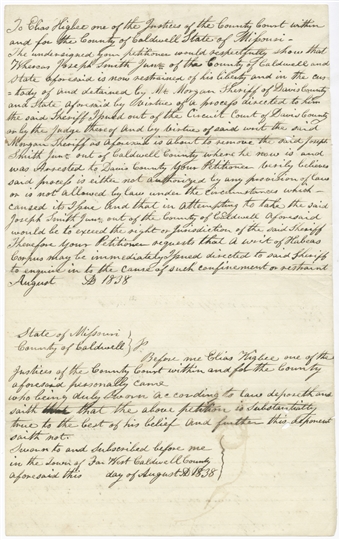 To Elias Higbee one of the Justices of the County Court within
and for the County of Caldwell State of Missouri -
The undersigned your petitioner would respectfully show that
Whereas Joseph Smith Junr of the County of Caldwell and
State aforesaid is now restrained of his liberty and in the cus-
-tody of and detained by Mr Morgan Sheriff of Davis County
and State aforesaid by Virtue of a process directed to him
the said Sheriff Issued out of the Circuit Court of Davis County
or by the Judge thereof and by virtue of said writ the said
Morgan Sheriff as aforesaid is about to remove the said Joseph
Smith Junr out of Caldwell County where he now is and
was arrested to Davis County Your Petitioner verily believes
said process is either not authorized by any provision of law
or is not allowed by law under the circumstances which
caused it Issue And that in attempting to take the said
Joseph Smith Junr out of the County of Caldwell aforesaid
would be to exceed the right or Jurisdiction of the said Sheriff
Therefore Your Petitioner requests that a writ of Habeas
Corpus may be immediately Issued directed to said Sheriff
to enquire in to the cause of such confinement or restraint
August AD 1838
State of Missouri
County of Caldwell
Before me Elias Higbee one of the
Justices of the County Court within and for the County
aforesaid personally came
who being duly Sworn according to law deposeth and
saith that the above petition is Substantially
true to the best of his belief and further this deponent
saith not.
Sworn to and Subscribed before me
in the Town of Far West Caldwell County
aforesaid this day of August AD 1838